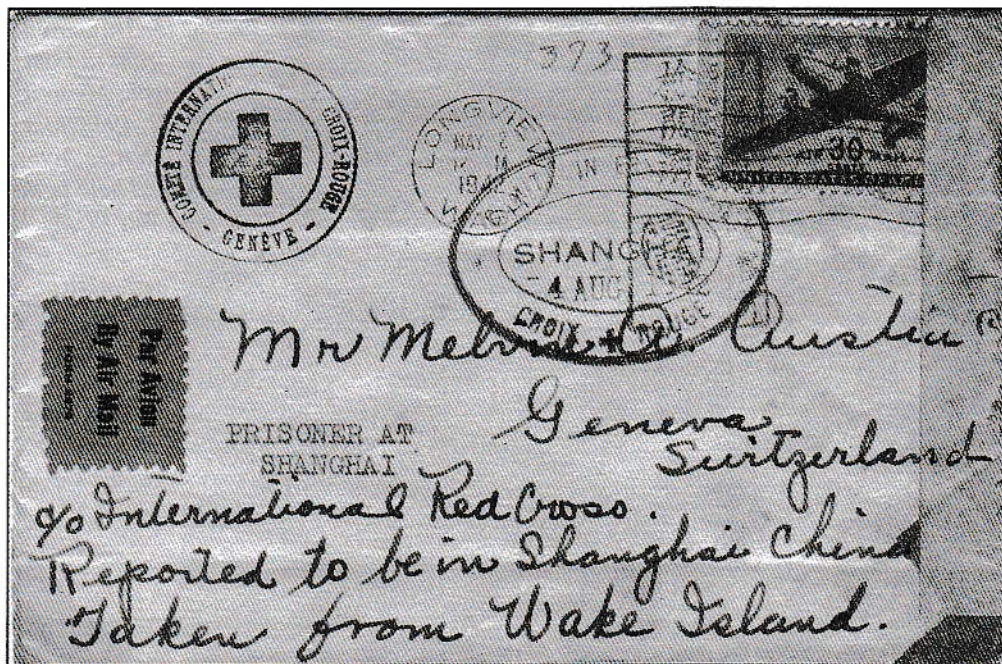 393
COMITÉ INTERNAT CROIX-ROUGE
- GENÈVE -
LONGVIEW
MAY 2
30
SHANGH
4 AUG
CROIX ROUGE
Par Avion
By Air Mail
Mr Melvin A. Austin
Geneva
Switzerland
PRISONER AT
SHANGHAI
c/o International Red Cross.
Reported to be in Shanghai China
Taken from Wake Island.